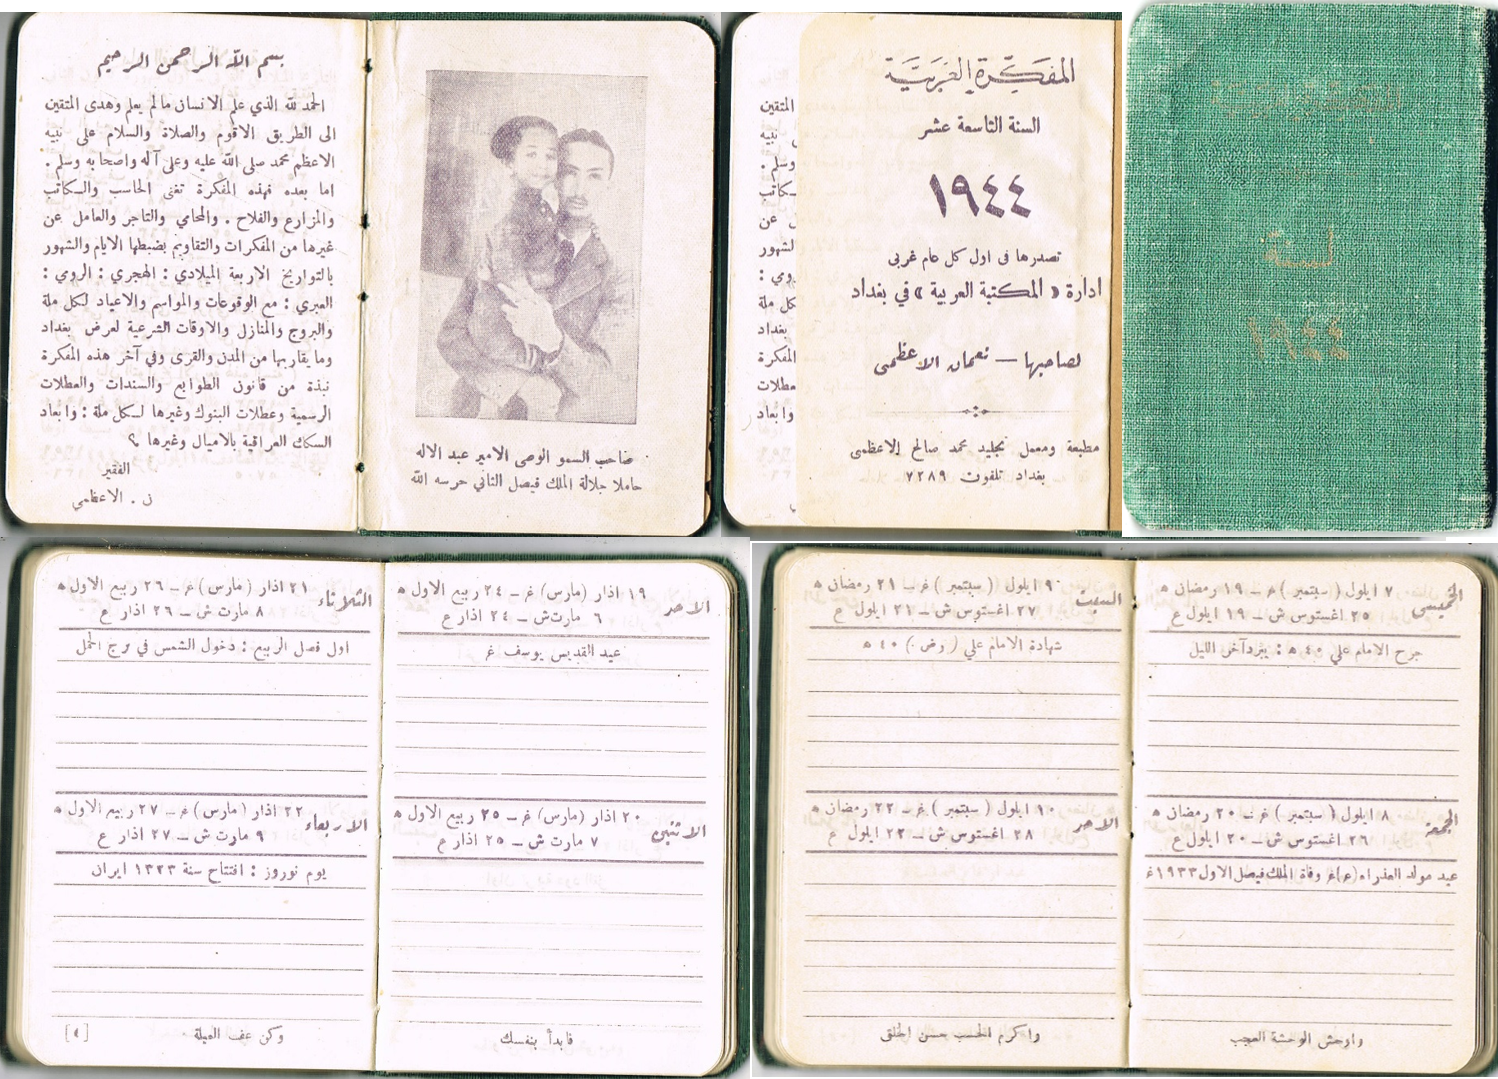 بسم الله الرحمن الرحيم
الحمد لله الذي علم الانسان مالم يعلم وهدى المتقين
الى الطريق الاقوم والصلاة والسلام على نبيه
الاعظم محمد صلى الله عليه وعلى آله واصحابه وسلم .
اما بعده فهذه المفكرة تغنى الحاسب والكاتب
والمزارع والفلاح . والمحامي والتاجر والعامل عن
غيرها من المفكرات والتقاويم بضبطها الايام والشهور
بالتواريخ الاربعة الميلادي : الهجري : الرومي :
العبري : مع الوقوعات والمواسم والاعياد لكل ملة
والبروج والمنازل والاوقات الشرعية لعرض بغداد
وما يقاربها من المدن والقرى وفي آخر هذه المفكرة
نبذة من قانون الطوابع والسندات والعطلات
الرسمية وعطلات البنوك وغيرها لكل ملة : وابعاد
السكك العراقية بالاميال وغيرها ؟
الفقير
ن . الاعظمي
صاحب السمو الوصى الامير عبد الاله
حاملا جلالة الملك فيصل الثاني حرسه الله
المتقين
نبيه
وسلم .
عن
الشهور
كل ملة
بغداد
المفكرة
وابعاد
المفكرة الغربية
السنة التاسعة عشر
١٩٤٤
تصدرها في اول كل عام غربى
ادارة « المكتبة العربية » في بغداد
لصاحبها — نعمان الاعظمى
مطبعة ومعمل تجليد محمد صالح الاعظمى
بغداد تلفون ٧٢٨٩
لسنة
١٩٤٤
الاحد
١٩ اذار (مارس) غ – ٢٤ ربيع الاول ه
٦ مارت ش – ٢٤ اذار ع
عيد القديس يوسف غ
الاثنين
٢٠ اذار (مارس) غ – ٢٥ ربيع الاول ه
٧ مارت ش – ٢٥ اذار ع
فابدأ بنفسك
الثلاثاء
٢١ اذار (مارس) غ – ٢٦ ربيع الاول ه
٨ مارت ش – ٢٦ اذار ع
اول فصل الربيع : دخول الشمس في برج الحمل
الاربعاء
٢٢ اذار (مارس) غ – ٢٧ ربيع الاول ه
٩ مارت ش – ٢٧ اذار ع
يوم نوروز : افتتاح سنة ١٣٢٣ ايران
وكن عف العيلة
الخميس
٧ ايلول (سبتمبر) غ – ١٩ رمضان ه
٢٥ اغستوس ش – ١٩ ايلول ع
جرح الامام علي ٤٠ ه : يبرد آخر الليل
الجمعة
٨ ايلول (سبتمبر) غ – ٢٠ رمضان ه
٢٦ اغستوس ش – ٢٠ ايلول ع
عيد مولد العذراء (ع) غ وفاة الملك فيصل الاول ١٩٣٣ غ
واوحش الوحشة العجب
السبت
٩ ايلول (سبتمبر) غ – ٢١ رمضان ه
٢٧ اغستوس ش – ٢١ ايلول ع
شهادة الامام علي (رض) ٤٠ ه
الاحد
١٠ ايلول (سبتمبر) غ – ٢٢ رمضان ه
٢٨ اغستوس ش – ٢٢ ايلول ع
واكرم الحسب حسن الخلق